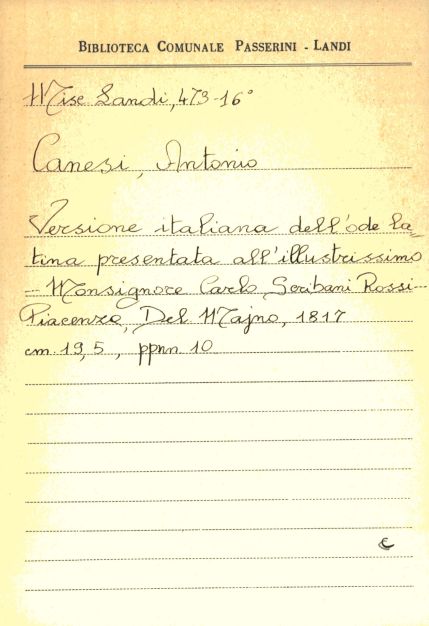 BIBLIOTECA COMUNALE PASSERINI - LANDI
Misc Landi, 473-16°
Canesi, Antonio
Versione italiana dell'ode la=
tina presentata all'illustrissimo
Monsignore Carlo Scribani Rossi-
Piacenza, Del Majno, 1817
cm. 19,5, ppnn 10
C